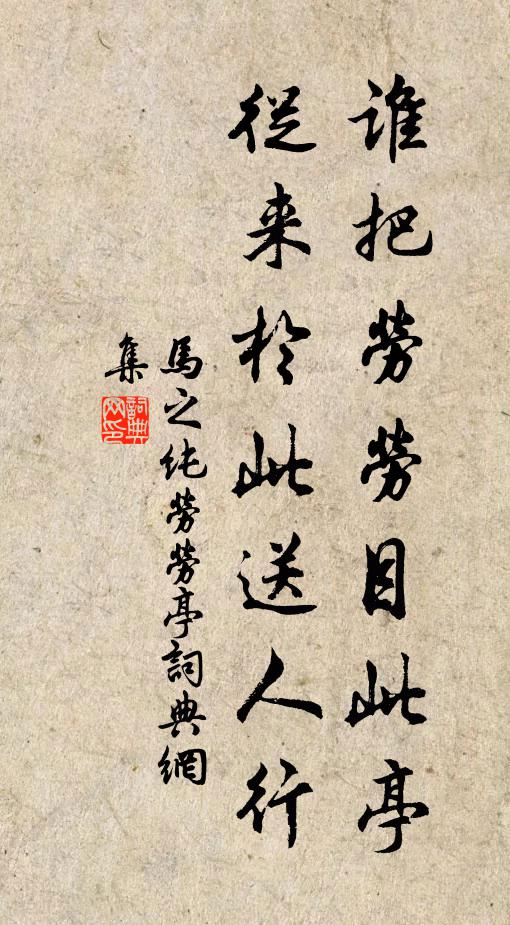 誰把勞勞目此亭
從来於此送人行
馬之純勞勞亭詞典網
集
詞典
网印